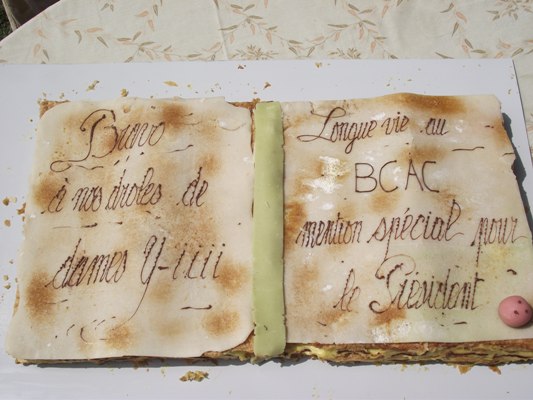 Bravo
à nos drôles de
dames Y-iiii
Longue vie au
BCAC
mention spécial pour
le Président